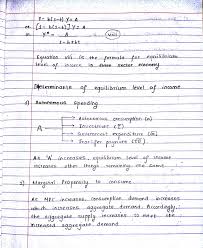 Y - b(1-t) Y = A
or [1 - b(1-t)] Y = A
or Y* = A / 1-b+bt
Equation viii is the formula for equilibrium
level of income in three sector economy
Determinants of equilibrium level of income
1) Autonomous Spending
→ Autonomous consumption (a)
→ Investment (I)
A → Government expenditure (G)
→ Transfer payment (TR)
As 'A' increases, equilibrium level of income
increases other things remaining the same.
2) Marginal Propensity to consume
As MPC increases, consumption demand increases
which increases aggregate demand. Accordingly,
the aggregate supply increases to meet the
increased aggregate demand.